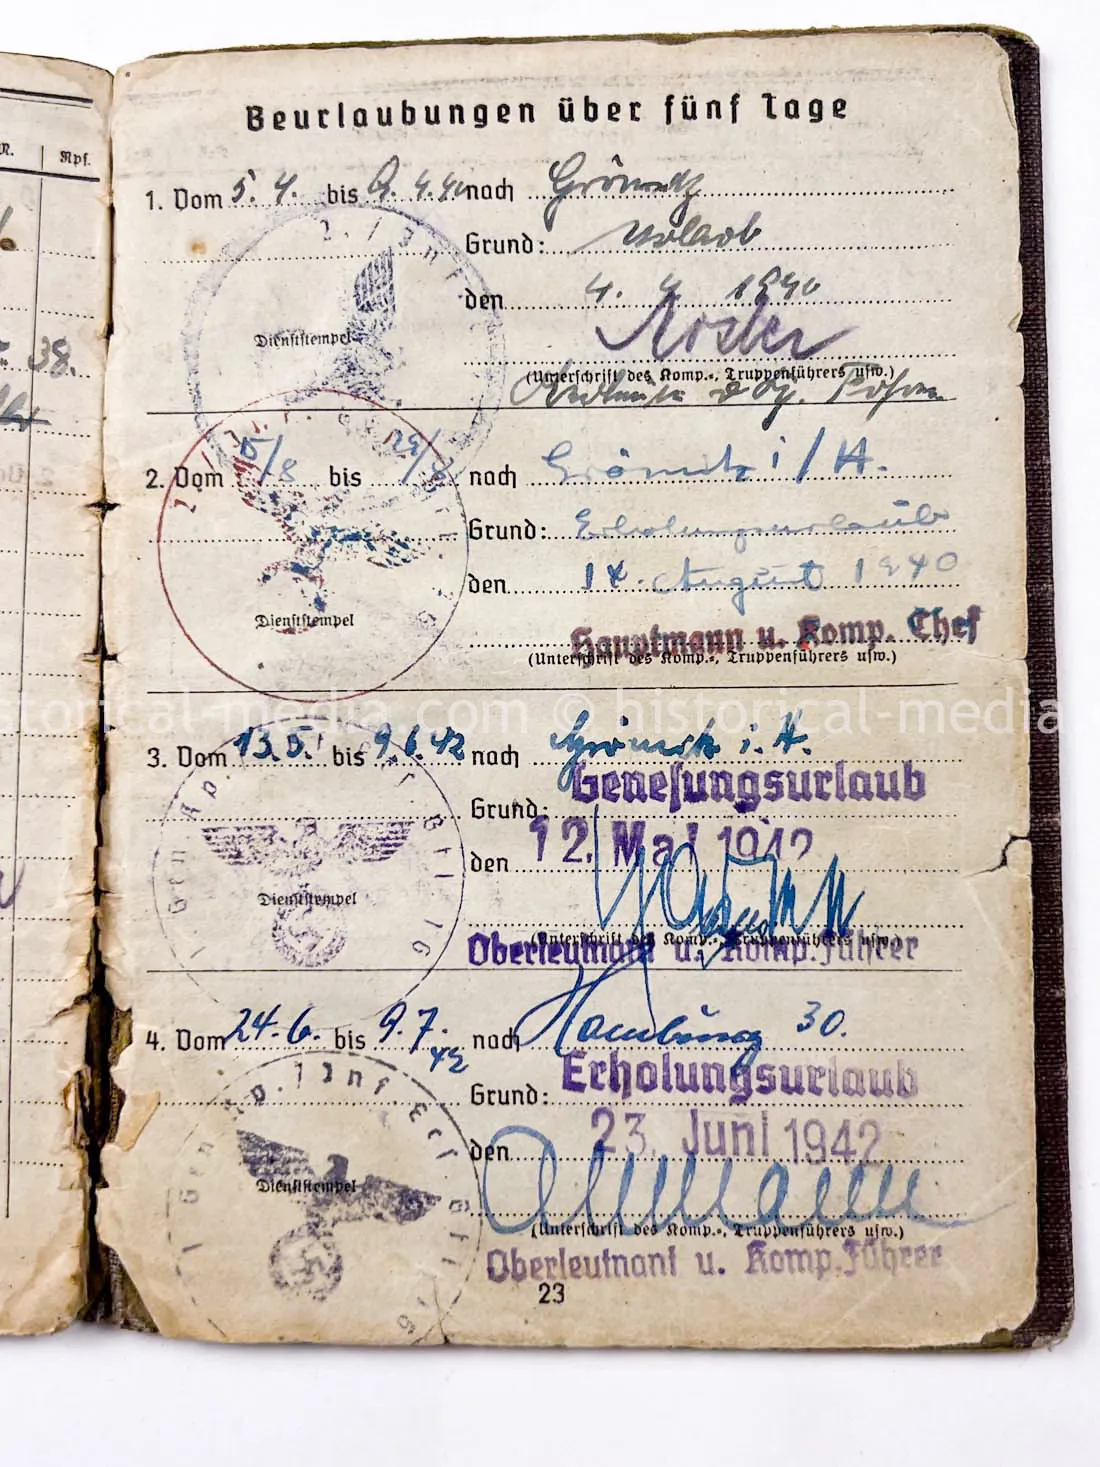 M. | Rpf.
38.
Beurlaubungen über fünf Tage
1. Vom 5. 4. bis 9. 4. 40 nach Grömitz
Grund: Urlaub
den 4. 4. 1940
Dienststempel
(Unterschrift des Komp.-, Truppenführers usw.)
2. Vom 15/8 bis 29/8 nach Grömitz i/H.
Grund: Erholungsurlaub
den 14. August 1940
Dienststempel
Hauptmann u. Komp. Chef
(Unterschrift des Komp.-, Truppenführers usw.)
historical-media.com © historical-media
3. Vom 13.5. bis 9.6.42 nach Grömitz i. H.
Genesungsurlaub
Grund:
den 12. Mai 1942
Dienststempel
(Unterschrift des Komp.-, Truppenführers usw.)
Oberleutnant u. Komp.Führer
4. Vom 24.6. bis 9.7. 42 nach Hamburg 30.
Grund: Erholungsurlaub
den 23. Juni 1942
Dienststempel
(Unterschrift des Komp.-, Truppenführers usw.)
Oberleutnant u. Komp.Führer
23